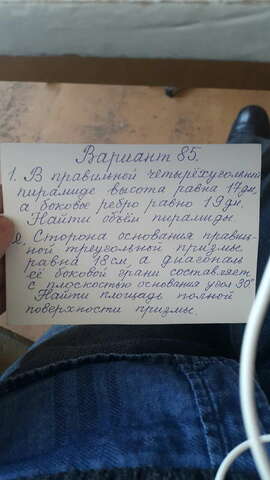 Вариант 85.
1. В правильной четырёхугольной
пирамиде высота равна 17дм,
а боковое ребро равно 19дм.
Найти объём пирамиды.
2. Сторона основания правиль-
ной треугольной призмы
равна 18см, а диагональ
её боковой грани составляет
с плоскостью основания угол 30°
Найти площадь полной
поверхности призмы.